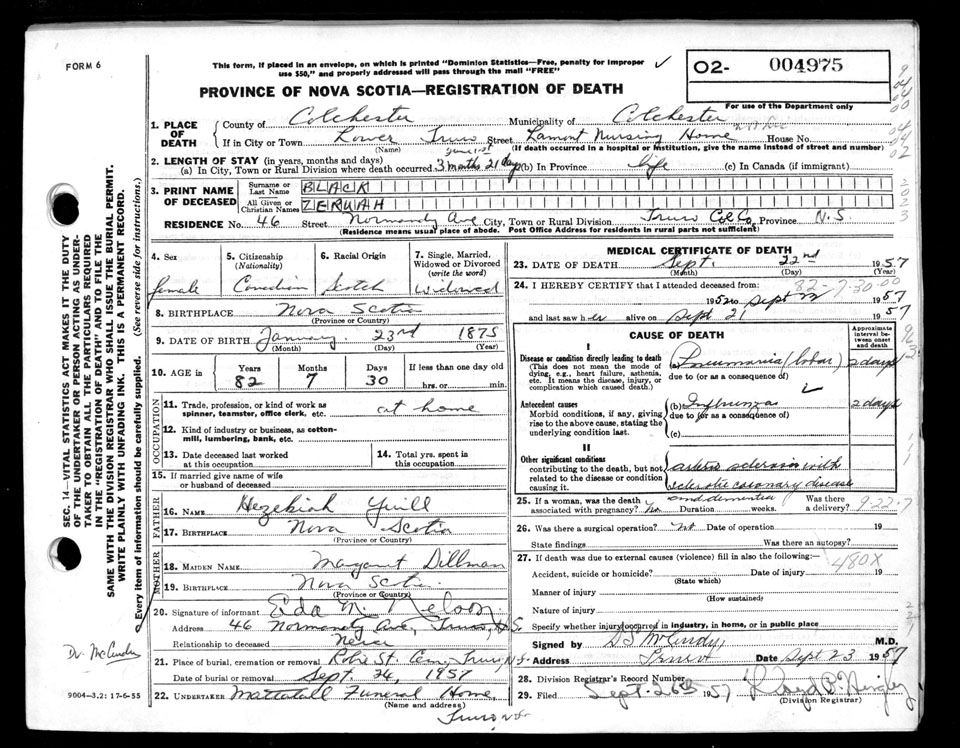 FORM 6
This form, if placed in an envelope, on which is printed "Dominion Statistics—Free, penalty for improper
use $50," and properly addressed will pass through the mail "FREE"
PROVINCE OF NOVA SCOTIA—REGISTRATION OF DEATH
O2- 004975
For use of the Department only
1. PLACE OF DEATH
County of Colchester Municipality of Colchester
If in City or Town Lower Truro Street Lamont Nursing Home House No.
(Name) (If death occurred in a hospital or institution, give the name instead of street and number)
2. LENGTH OF STAY (in years, months and days)
(a) In City, Town or Rural Division where death occurred 3 months 21 days (b) In Province life (c) In Canada (if immigrant)
3. PRINT NAME OF DECEASED
Surname or Last Name BLACK
All Given or Christian Names ZERUAH
RESIDENCE No. 46 Street Normandy Ave City, Town or Rural Division Truro Col Co Province N.S.
(Residence means usual place of abode. Post Office Address for residents in rural parts not sufficient)
4. Sex
female
5. Citizenship
(Nationality)
Canadian
6. Racial Origin
Scotch
7. Single, Married,
Widowed or Divorced
(write the word)
Widowed
8. BIRTHPLACE Nova Scotia
(Province or Country)
9. DATE OF BIRTH January 23rd 1875
(Month) (Day) (Year)
10. AGE in
Years Months Days If less than one day old
82 7 30 hrs. or min.
OCCUPATION
11. Trade, profession, or kind of work as
spinner, teamster, office clerk, etc. at home
12. Kind of industry or business, as cotton-
mill, lumbering, bank, etc.
13. Date deceased last worked
at this occupation
14. Total yrs. spent in
this occupation
15. If married give name of wife
or husband of deceased
FATHER
16. NAME Hezekiah Yuill
17. BIRTHPLACE Nova Scotia
(Province or Country)
MOTHER
18. MAIDEN NAME Margaret Dillman
19. BIRTHPLACE Nova Scotia
(Province or Country)
20. Signature of informant Eda M. Nelson
Address 46 Normandy Ave, Truro, N.S.
Relationship to deceased Neice
21. Place of burial, cremation or removal Robie St. Cem, Truro N.S.
Date of burial or removal Sept. 24, 1957
22. UNDERTAKER Mattatall Funeral Home
(Name and address)
Truro N.S.
MEDICAL CERTIFICATE OF DEATH
23. DATE OF DEATH Sept. 22nd 1957
(Month) (Day) (Year)
24. I HEREBY CERTIFY that I attended deceased from:
82-7-30-00
1952 to Sept 22 1957
and last saw her alive on Sept 21 1957
CAUSE OF DEATH
Approximate interval between onset and death
I
Disease or condition directly leading to death
(This does not mean the mode of dying, e.g., heart failure, asthenia, etc. It means the disease, injury, or complication which caused death.)
(a) Pneumonia (lobar) 2 days
due to (or as a consequence of)
Antecedent causes
Morbid conditions, if any, giving rise to the above cause, stating the underlying condition last.
(b) Influenza 2 days
due to (or as a consequence of)
(c)
II
Other significant conditions
contributing to the death, but not related to the disease or condition causing it.
arterio sclerosis with
sclerotic coronary disease
and dementia
25. If a woman, was the death
associated with pregnancy? No Duration weeks. Was there a delivery?
9-22-7
26. Was there a surgical operation? No Date of operation 19
State findings Was there an autopsy?
27. If death was due to external causes (violence) fill in also the following:—
480X
Accident, suicide or homicide? Date of injury 19
(State which)
Manner of injury
(How sustained)
Nature of injury
Specify whether injury occurred in industry, in home, or in public place
Signed by M.D.
Address Truro Date Sept 23 1957
28. Division Registrar's Record Number
29. Filed Sept. 26th 1957
(Division Registrar)
SEC. 14—VITAL STATISTICS ACT MAKES IT THE DUTY
OF THE UNDERTAKER OR PERSON ACTING AS UNDER-
TAKER TO OBTAIN ALL THE PARTICULARS REQUIRED
IN THE "REGISTRATION OF DEATH" AND TO FILE THE
SAME WITH THE DIVISION REGISTRAR WHO SHALL ISSUE THE BURIAL PERMIT.
WRITE PLAINLY WITH UNFADING INK. THIS IS A PERMANENT RECORD.
Every item of information should be carefully supplied. (See reverse side for instructions.)
9004-3.2: 17-6-55